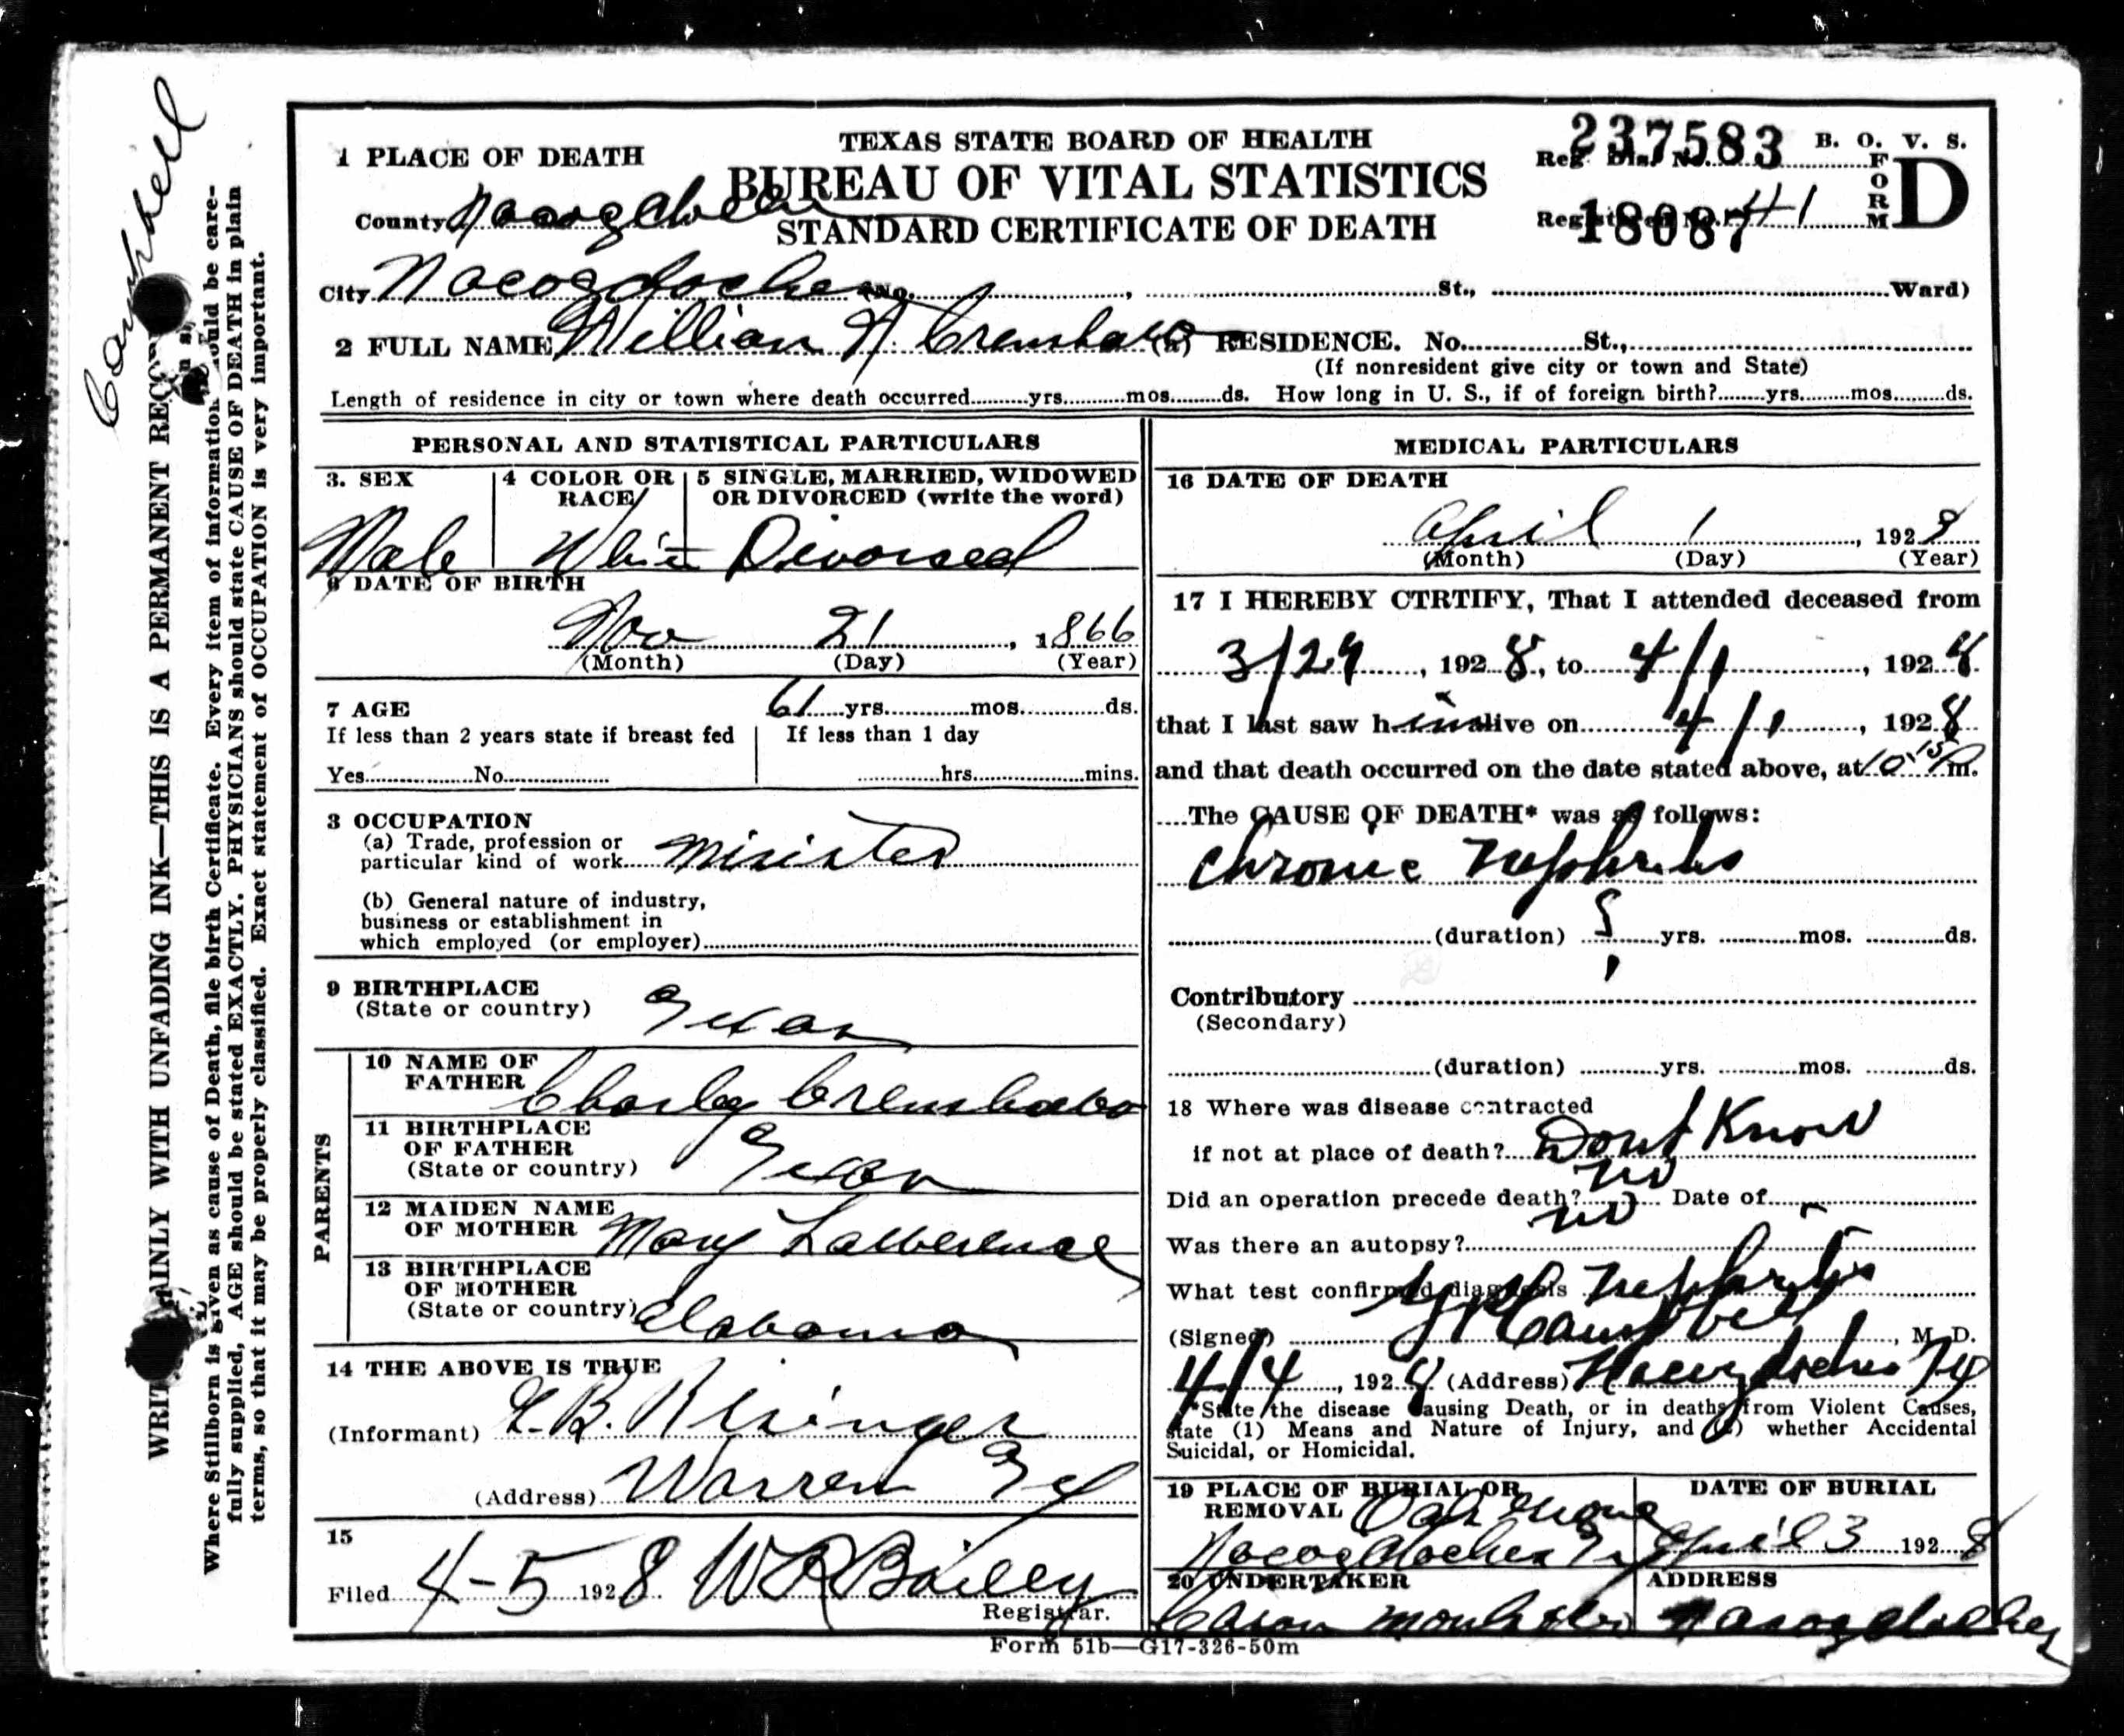 Campbell
WRITE PLAINLY WITH UNFADING INK—THIS IS A PERMANENT RECORD
Where Stillborn is given as cause of Death, file birth Certificate. Every item of information should be care-
fully supplied, AGE should be stated EXACTLY. PHYSICIANS should state CAUSE OF DEATH in plain
terms, so that it may be properly classified. Exact statement of OCCUPATION is very important.
TEXAS STATE BOARD OF HEALTH
BUREAU OF VITAL STATISTICS
STANDARD CERTIFICATE OF DEATH
Reg. Dis. No. 237583
Registered No. 41
18087
B. O. V. S.
FORM D
1 PLACE OF DEATH
County Nacogdoches
City Nacogdoches (No. , St., Ward)
2 FULL NAME William N. Crenshaw (a) RESIDENCE. No. St.,
(If nonresident give city or town and State)
Length of residence in city or town where death occurred yrs. mos. ds. How long in U. S., if of foreign birth? yrs. mos. ds.
PERSONAL AND STATISTICAL PARTICULARS
3. SEX 4 COLOR OR RACE 5 SINGLE, MARRIED, WIDOWED
OR DIVORCED (write the word)
Male White Divorsed
6 DATE OF BIRTH
Nov 21, 1866
(Month) (Day) (Year)
7 AGE 61 yrs. mos. ds.
If less than 2 years state if breast fed If less than 1 day
Yes No hrs. mins.
3 OCCUPATION
(a) Trade, profession or
particular kind of work Minister
(b) General nature of industry,
business or establishment in
which employed (or employer)
9 BIRTHPLACE
(State or country) Texas
PARENTS
10 NAME OF
FATHER Charley Crenshaw
11 BIRTHPLACE
OF FATHER
(State or country) Texas
12 MAIDEN NAME
OF MOTHER Mary Lawerence
13 BIRTHPLACE
OF MOTHER
(State or country) Alabama
14 THE ABOVE IS TRUE
(Informant) B. Risinger
(Address) Warren Tex
15
Filed 4-5 1928 W R Bailey
Registrar.
MEDICAL PARTICULARS
16 DATE OF DEATH
April 1, 1928
(Month) (Day) (Year)
17 I HEREBY CTRTIFY, That I attended deceased from
3/29, 1928, to 4/1, 1928
that I last saw him alive on 4/1, 1928
and that death occurred on the date stated above, at 10 15 P m.
The CAUSE OF DEATH* was as follows:
Chronic Nephritis
(duration) ? yrs. mos. ds.
Contributory
(Secondary)
(duration) yrs. mos. ds.
18 Where was disease contracted
if not at place of death? Dont Know
Did an operation precede death? no Date of
Was there an autopsy? no
What test confirmed diagnosis Nephritis
(Signed) Campbell, M. D.
4/4, 1928 (Address) Nacogdoches Tex
*State the disease causing Death, or in deaths from Violent Causes,
state (1) Means and Nature of Injury, and (2) whether Accidental
Suicidal, or Homicidal.
19 PLACE OF BURIAL OR DATE OF BURIAL
REMOVAL Oak Grove
Nacogdoches Tex April 3 1928
20 UNDERTAKER ADDRESS
Cason Monk Nacogdoches
Form 51b—G17-326-50m